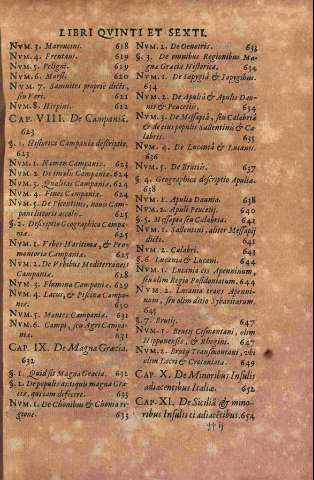 LIBRI QVINTI ET SEXTI.
NVM. 3. Marrucini. 618
NVM. 4. Frentani. 619
NVM. 5. Peligni. 619
NVM. 6. Marsi. 620
NVM. 7. Samnites proprie dicti,
seu Pari. 621
NVM. 8. Hirpini. 622
CAP. VIII. De Campaniâ.
623
§. 1. Historica Campaniæ descriptio.
623
NVM. 1. Nomen Campaniæ. 623
NVM. 2. De populis Campaniæ. 624
NVM. 3. Qualitas Campaniæ. 624
NVM. 4. Fines Campaniæ. 624
NVM. 5. De Picentinis, novis Cam-
paniæ litoris accolis. 625
§. 2. Descriptio Geographica Campa-
niæ. 625
NVM. 1. Vrbes Maritimæ, & Pro-
montoria Campaniæ. 625
NVM. 2. De Vrbibus Mediterraneis
Campaniæ. 628
NVM. 3. Flumina Campaniæ. 629
NVM. 4. Lacus, & Piscinæ Campa-
niæ. 630
NVM. 5. Montes Campaniæ. 631
NVM. 6. Campi, seu Agri Campa-
niæ. 631
CAP. IX. De Magna Græcia.
632
§. 1. Quid sit Magna Græcia. 632
§. 2. De populis antiquis magnæ Græ-
ciæ, qui jam defecere. 633
NVM. 1. De Chonibus & Chonia re-
gione. 633
NVM. 2. De Oenotris. 633
§. 3. De omnibus Regionibus Ma-
gnæ Græciæ Historicæ. 634
NVM. 1. De Iapygiâ & Iapygibus.
634
NVM. 2. De Apuliâ & Apulis Dau-
niis & Peucetiis. 634
NVM. 3. De Messapiâ, seu Calabriâ
& de eius populis Sallentinis & Ca-
labris. 635
NVM. 4. De Lucaniâ & Lucanis.
636
NVM. 5. De Brutiis. 637
§. 4. Geographica descriptio Apuliæ.
638
NVM. 1. Apulia Daunia. 638
NVM. 2. Apuli Peucetij. 640
§. 5. Messapia seu Calabria. 641
NVM. 1. Sallentini, aliter Messapij
dicti. 641
NVM. 2. Calabri. 643
§. 6. Lucania & Lucani. 644
NVM. 1. Lucania cis Apenninum,
seu olim Regio Posidoniatarum. 644
NVM. 2. Lucania trans Apenni-
num, seu olim ditio Sybaritarum.
645
§. 7. Brutij. 647
NVM. 1. Brutij Cismontani, olim
Hipponenses, & Rhegini. 647
NVM. 2. Brutij Transmontani, vbi
olim Locri & Crotoniatæ. 649
CAP. X. De Minoribus Insulis
adiacentibus Italiæ. 652
CAP. XI. De Siciliâ & mino-
ribus Insulis ei adiacẽtibus. 654